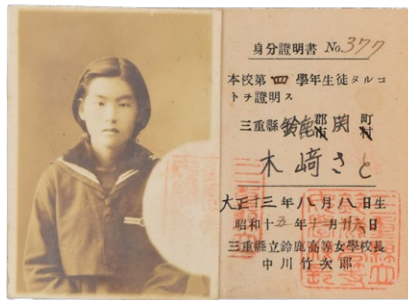 身分證明書 No.377
本校第四學年生徒タルコ
トヲ證明ス
三重縣鈴鹿郡関町
木﨑さと
大正十三年八月八日生
昭和十五年十月廿六日
三重縣立鈴鹿高等女學校長
中川竹次郎